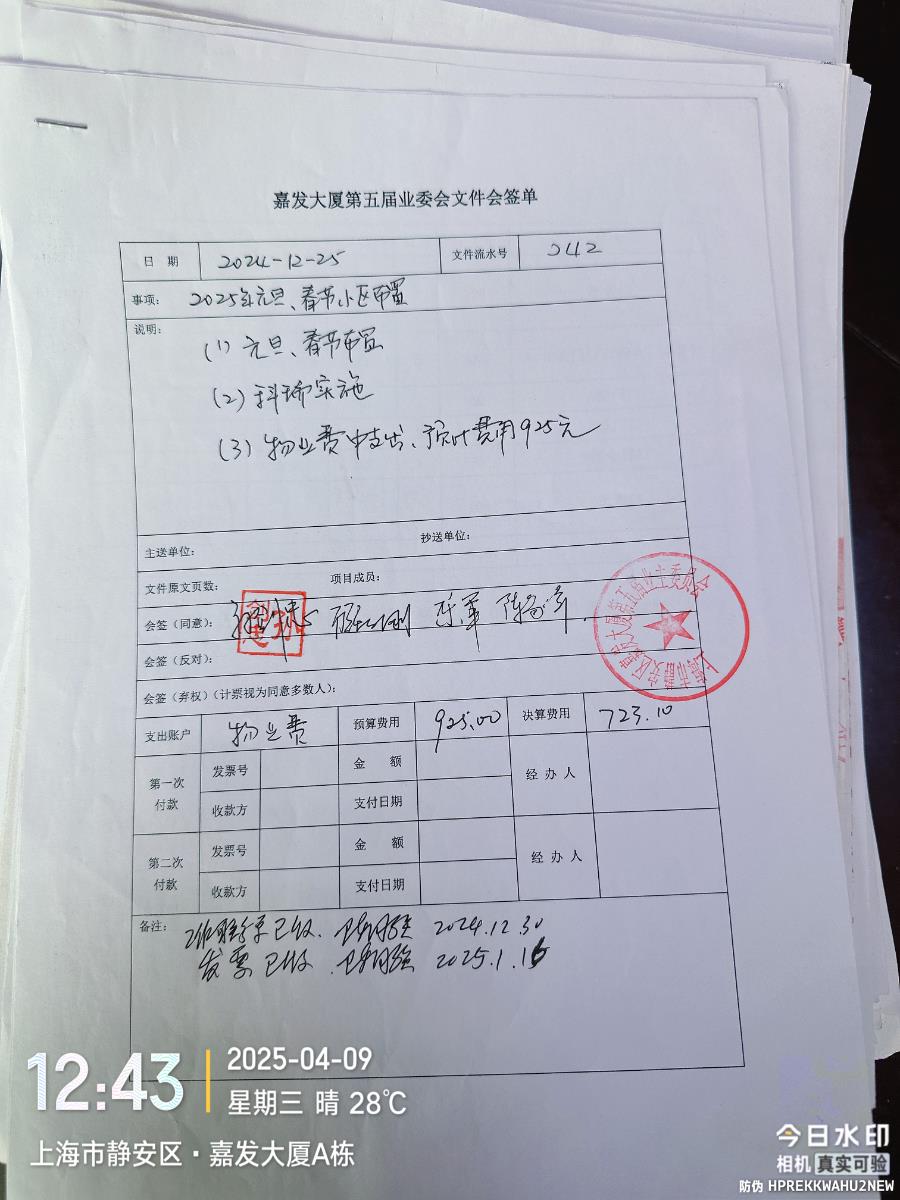 嘉发大厦第五届业委会文件会签单
日 期 2024-12-25 文件流水号 J42
事项: 2025年元旦、春节小区布置
说明:
(1) 元旦、春节布置
(2) 科瑞实施
(3) 物业费中支出、预计费用925元
主送单位: 抄送单位:
文件原文页数: 项目成员:
会签（同意）:
会签（反对）:
会签（弃权）(计票视为同意多数人):
上海市静安区嘉发大厦第五届业主委员会
支出账户 物业费 预算费用 925.00 决算费用 723.10
第一次付款 发票号 金 额 经 办 人
收款方 支付日期
第二次付款 发票号 金 额 经 办 人
收款方 支付日期
备注: 已收. 2024.12.30
发票已收 2025.1.16
12:43
2025-04-09
星期三 晴 28℃
上海市静安区·嘉发大厦A栋
今日水印
相机 真实可验
防伪 HPREKKWAHU2NEW